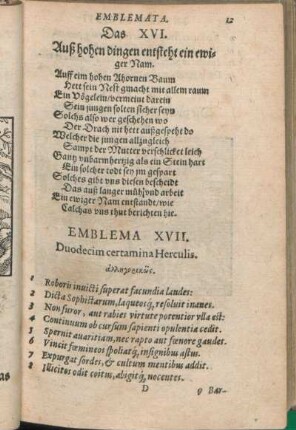 EMBLEMATA. 12
Das XVI.
Auß hohen dingen entsteht ein ewi-
ger Nam.
Auff eim hohen Ahornen Baum
Hett sein Nest gmacht mit allem raum
Ein Vögelein/vermeint darein
Sein jungen solten sicher seyn
Solchs also wer geschehen wo
Der Drach nit hett außgespeht do
Welcher die jungen allzugleich
Sampt der Mutter verschlickt leich
Gantz unbarmhertzig als ein Stein hart
Ein solcher todt sey jm gespart
Solches gibt uns diesen bescheidt
Das auß langer mühe und arbeit
Ein ewiger Nam entstandt/wie
Calchas uns thut berichten hie.
EMBLEMA XVII.
Duodecim certamina Herculis.
ἀλληγορικῶς.
1 Roboris invicti superat facundia laudes:
2 Dicta Sophistarum, laqueosq́, resoluit inanes.
3 Non furor, aut rabies virtute potentior ylla est:
4 Continuum ob cursum sapienti opulentia cedit.
5 Spernit avaritiam, nec rapto aut fœnore gaudet.
6 Vincit fœmineos spoliatq́, insignibus astus.
7 Expurgat sordes, & cultum mentibus addit.
8 Illicitos odit coitus, abigitq́, nocentes.
D 9 Bar-